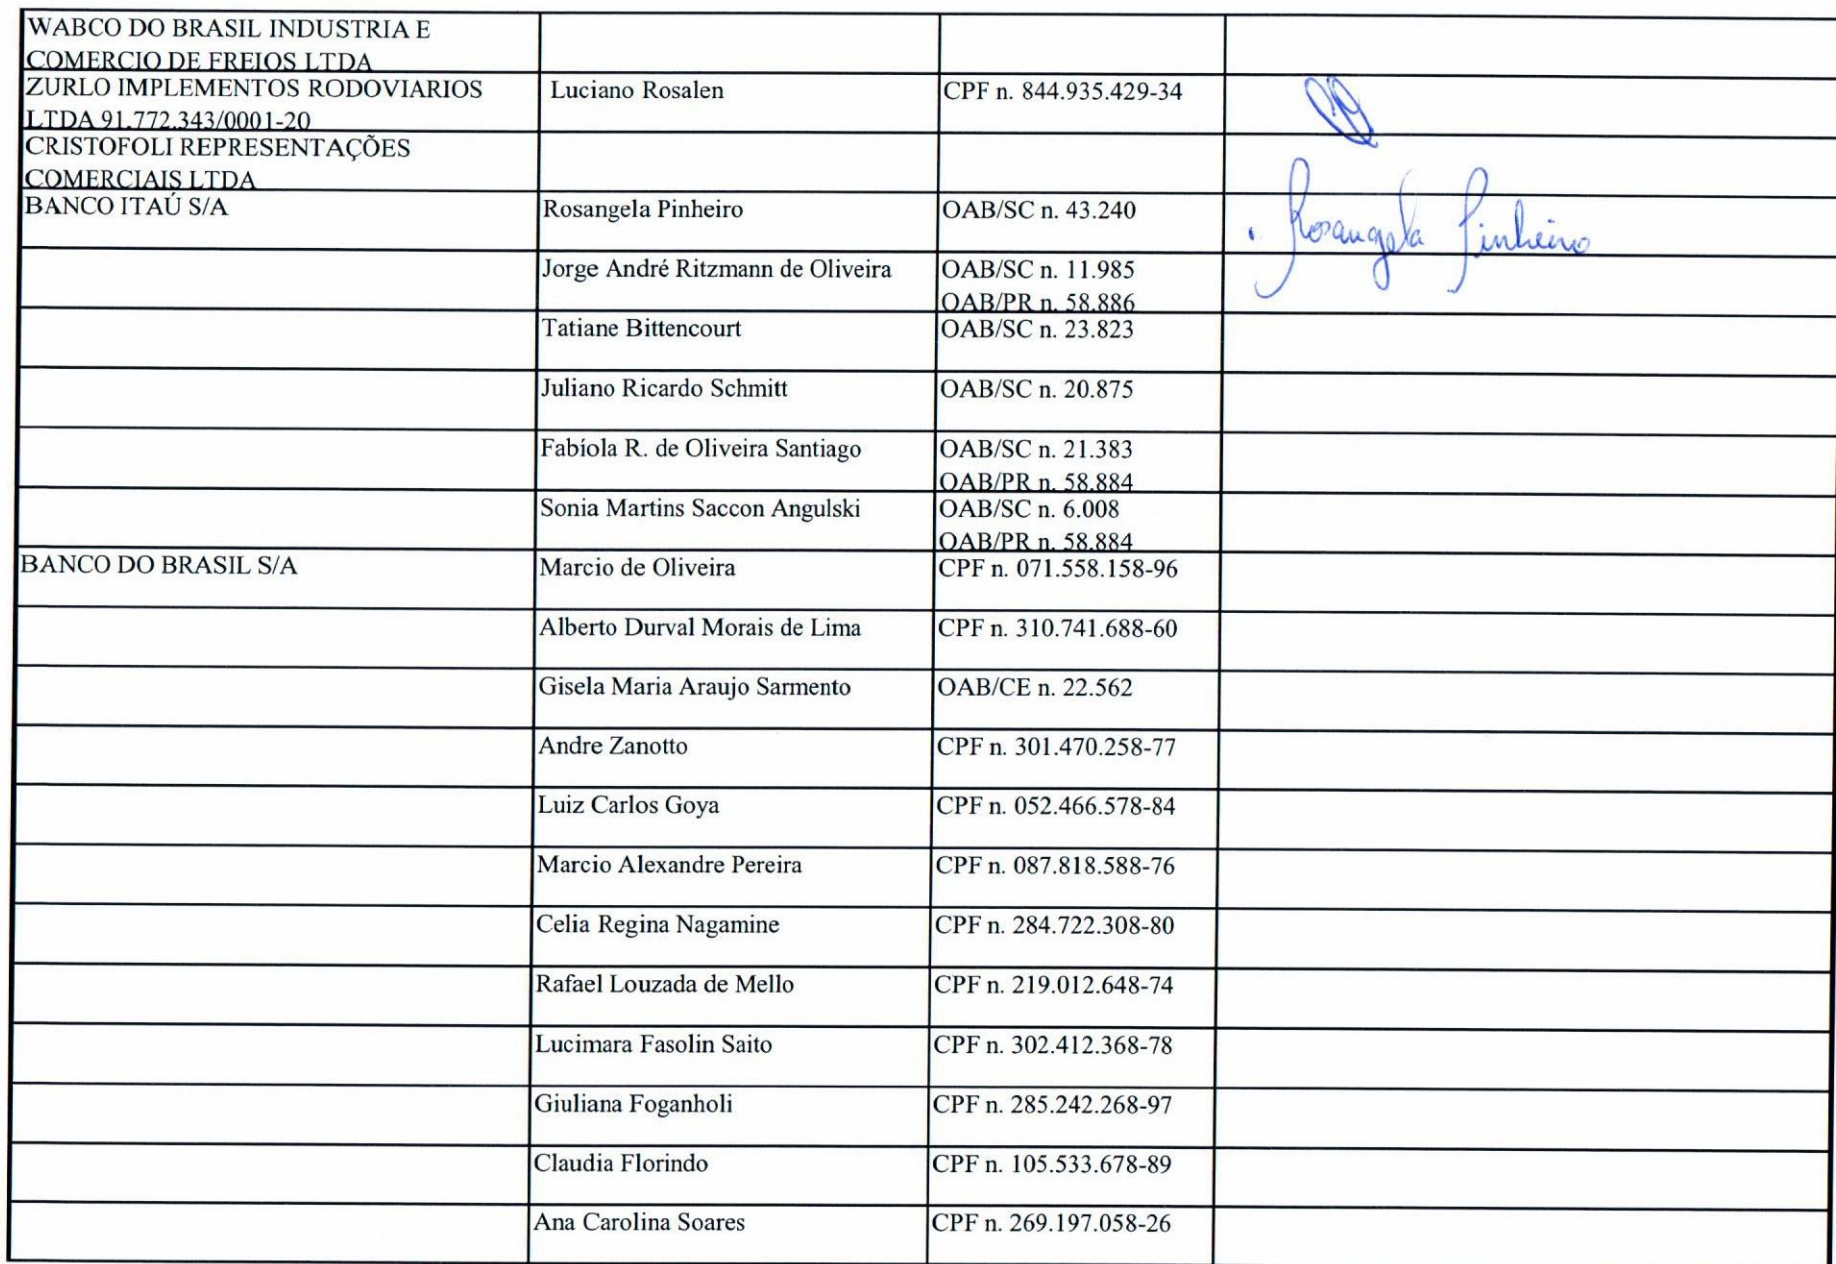 WABCO DO BRASIL INDUSTRIA E
COMERCIO DE FREIOS LTDA
ZURLO IMPLEMENTOS RODOVIARIOS Luciano Rosalen CPF n. 844.935.429-34
LTDA 91.772.343/0001-20
CRISTOFOLI REPRESENTAÇÕES
COMERCIAIS LTDA
BANCO ITAÚ S/A Rosangela Pinheiro OAB/SC n. 43.240
Rosangela Pinheiro
Jorge André Ritzmann de Oliveira OAB/SC n. 11.985
OAB/PR n. 58.886
Tatiane Bittencourt OAB/SC n. 23.823
Juliano Ricardo Schmitt OAB/SC n. 20.875
Fabíola R. de Oliveira Santiago OAB/SC n. 21.383
OAB/PR n. 58.884
Sonia Martins Saccon Angulski OAB/SC n. 6.008
OAB/PR n. 58.884
BANCO DO BRASIL S/A Marcio de Oliveira CPF n. 071.558.158-96
Alberto Durval Morais de Lima CPF n. 310.741.688-60
Gisela Maria Araujo Sarmento OAB/CE n. 22.562
Andre Zanotto CPF n. 301.470.258-77
Luiz Carlos Goya CPF n. 052.466.578-84
Marcio Alexandre Pereira CPF n. 087.818.588-76
Celia Regina Nagamine CPF n. 284.722.308-80
Rafael Louzada de Mello CPF n. 219.012.648-74
Lucimara Fasolin Saito CPF n. 302.412.368-78
Giuliana Foganholi CPF n. 285.242.268-97
Claudia Florindo CPF n. 105.533.678-89
Ana Carolina Soares CPF n. 269.197.058-26